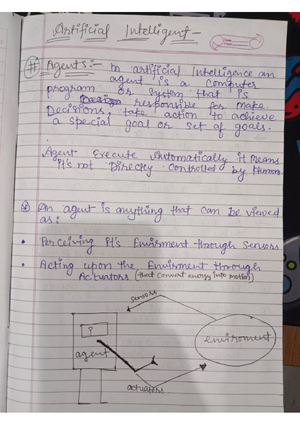 Artificial Intelligent -
# Agents :- In artificial Intelligence an
agent is a computer
program or system that is
responsible for make
Decisions, take action to achieve
a special goal or set of goals.
Agent Execute Automatically it means
it's not Directly controlled by Human
An agent is anything that can be viewed
as:
• Perceiving it's Envirment through Sensors
• Acting upon the Envirment through
Actuators (that convert energy into motion)
sensors
?
agent
enviroment
actuators